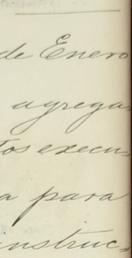 de Enero
agrega-
tos execu-
a para
instruc-